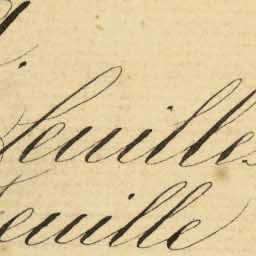 feuilles
feuille